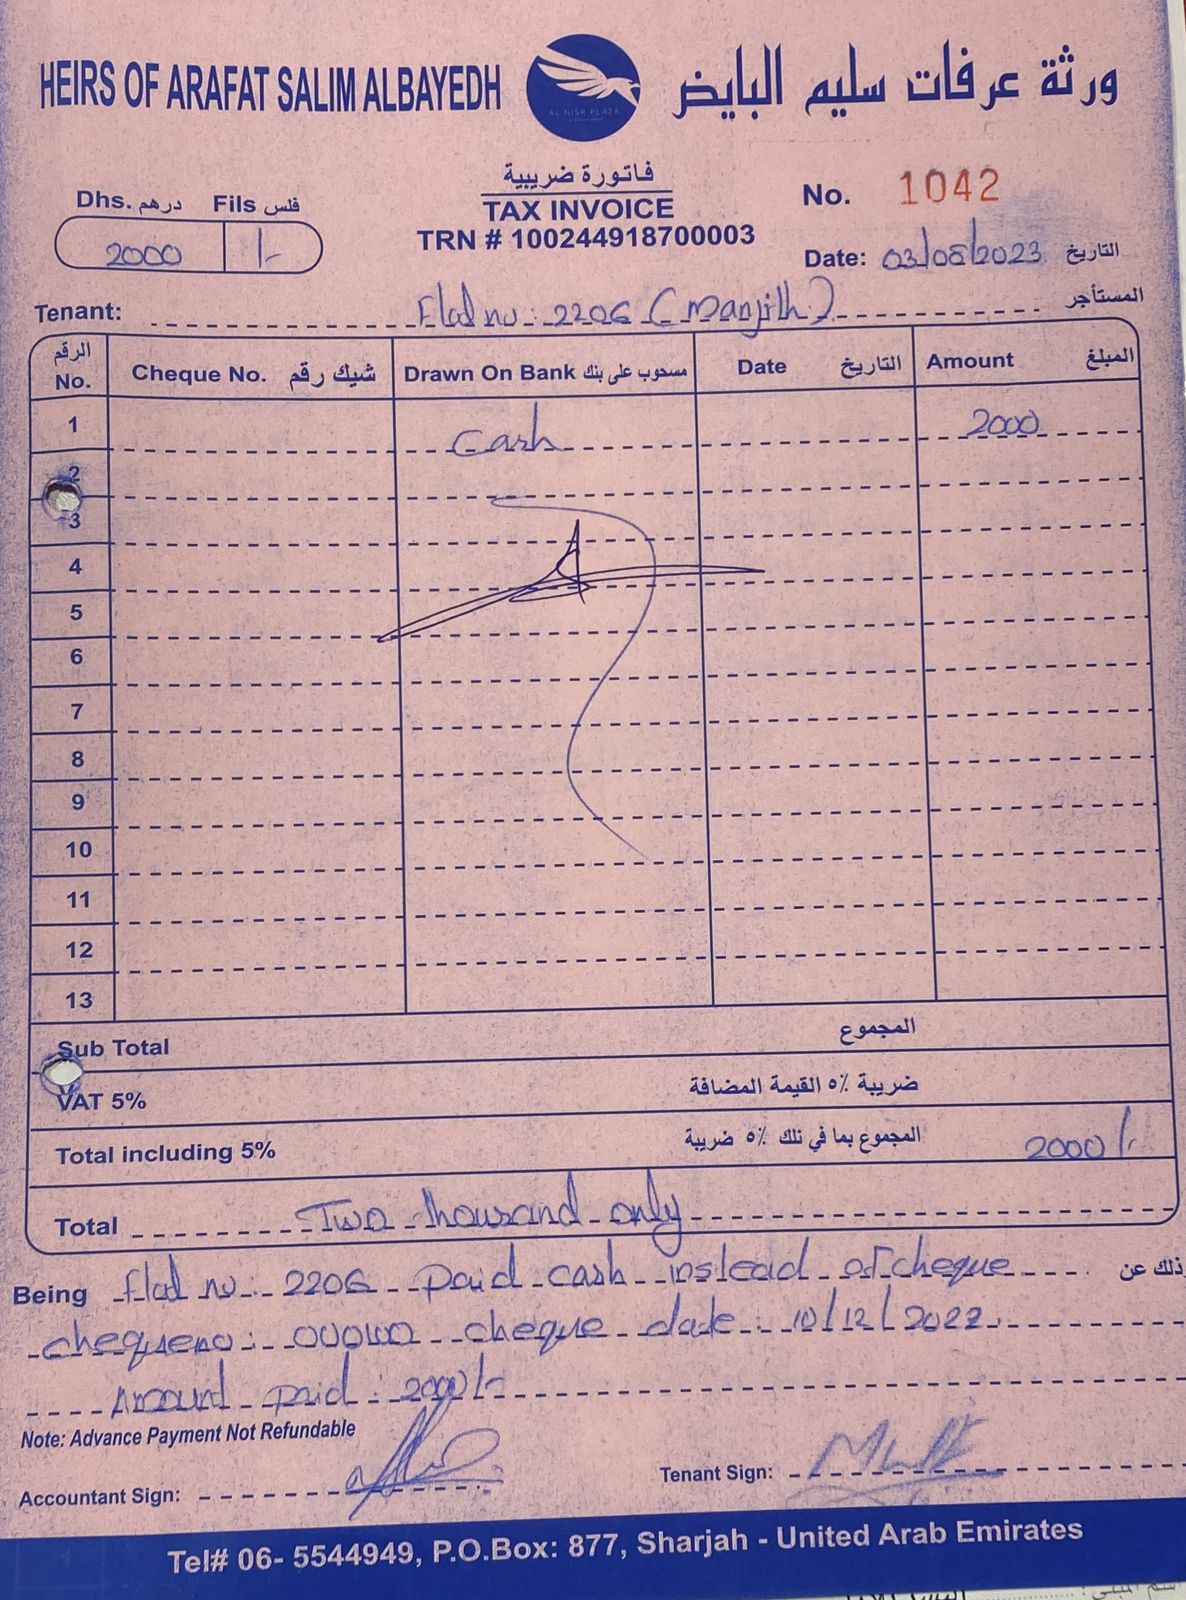 HEIRS OF ARAFAT SALIM ALBAYEDH
ورثة عرفات سليم البايض
AL NISR PLAZA
فاتورة ضريبية
TAX INVOICE
TRN # 100244918700003
Dhs. درهم Fils فلس
2000 /-
No. 1042
Date: 03/08/2023 التاريخ
Tenant: Flat no: 2206 (Manjith) المستأجر
الرقم No. Cheque No. شيك رقم Drawn On Bank مسحوب على بنك Date التاريخ Amount المبلغ
1 Cash 2000
2
3
4
5
6
7
8
9
10
11
12
13
Sub Total المجموع
VAT 5% ضريبة ٥٪ القيمة المضافة
Total including 5% المجموع بما في ذلك ٥٪ ضريبة 2000/-
Total Two thousand only
Being Flat no: 2206 paid cash instead of cheque وذلك عن
chequeno: cheque date: 10/12/2022
Amount paid: 2000/-
Note: Advance Payment Not Refundable
Accountant Sign:
Tenant Sign:
Tel# 06- 5544949, P.O.Box: 877, Sharjah - United Arab Emirates